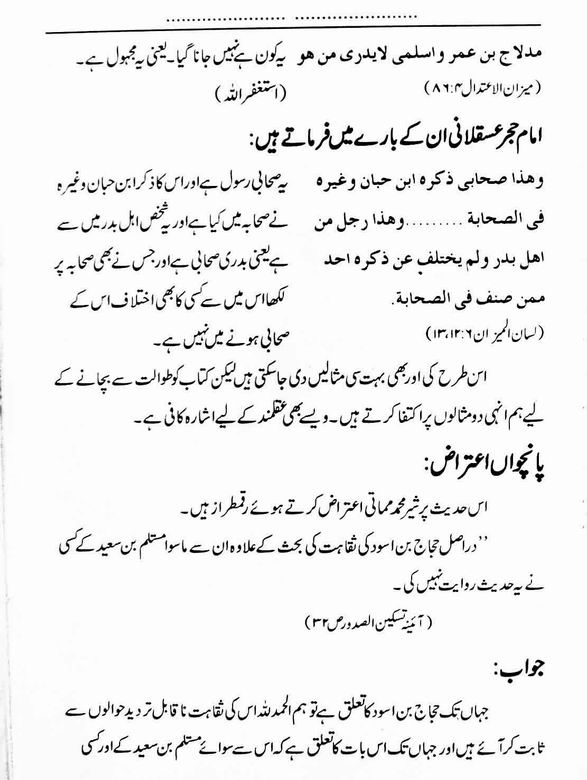 مدلاج بن عمر و اسلمی لایدری من هو
یہ کون ہے نہیں جانا گیا۔ یعنی یہ مجہول ہے۔
(میزان الاعتدال ۴:۸۶)
(استغفر اللہ)
امام حجر عسقلانی ان کے بارے میں فرماتے ہیں:
وهذا صحابی ذکره ابن حبان وغیره
فی الصحابة .........وهذا رجل من
اهل بدر ولم یختلف عن ذکره احد
ممن صنف فی الصحابة.
(لسان المیزان ۶:۱۲،۱۳)
یہ صحابی رسول ہے اور اس کا ذکر ابن حبان وغیرہ
نے صحابہ میں کیا ہے اور یہ شخص اہل بدر میں سے
ہے یعنی بدری صحابی ہے اور جس نے بھی صحابہ پر
لکھا اس میں سے کسی کا بھی اختلاف اس کے
صحابی ہونے میں نہیں ہے۔
اس طرح کی اور بھی بہت سی مثالیں دی جاسکتی ہیں لیکن کتاب کو طوالت سے بچانے کے
لیے ہم انہی دو مثالوں پر اکتفا کرتے ہیں۔ ویسے بھی عقلمند کے لیے اشارہ کافی ہے۔
پانچواں اعتراض:
اس حدیث پر شیر محمد مماتی اعتراض کرتے ہوئے رقمطراز ہیں۔
’’دراصل حجاج بن اسود کی ثقاہت کی بحث کے علاوہ ان سے ماسوا مستلم بن سعید کے کسی
نے یہ حدیث روایت نہیں کی۔
(آئینہ تسکین الصدور ص ۳۲)
جواب:
جہاں تک حجاج بن اسود کا تعلق ہے تو ہم الحمدللہ اس کی ثقاہت ناقابل تردید حوالوں سے
ثابت کر آئے ہیں اور جہاں تک اس بات کا تعلق ہے کہ اس سے سوائے مستلم بن سعید کے اور کسی